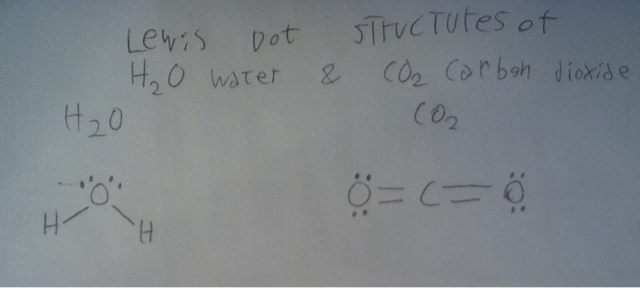 Lewis Dot Structures of
H₂O water & CO₂ Carbon dioxide
H₂O CO₂
O O = C = O
H H